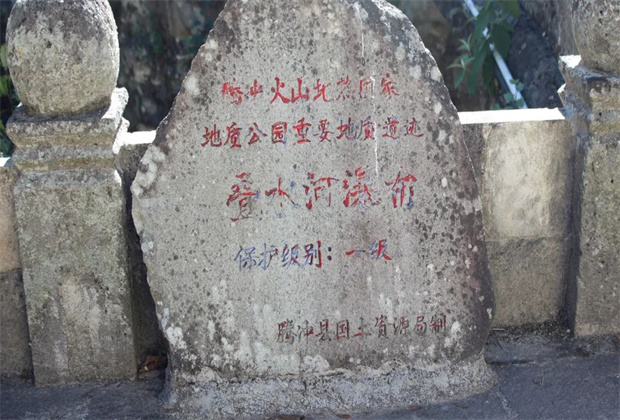 腾冲火山地热国家
地质公园重要地质遗迹
叠水河瀑布
保护级别：一级
腾冲县国土资源局制